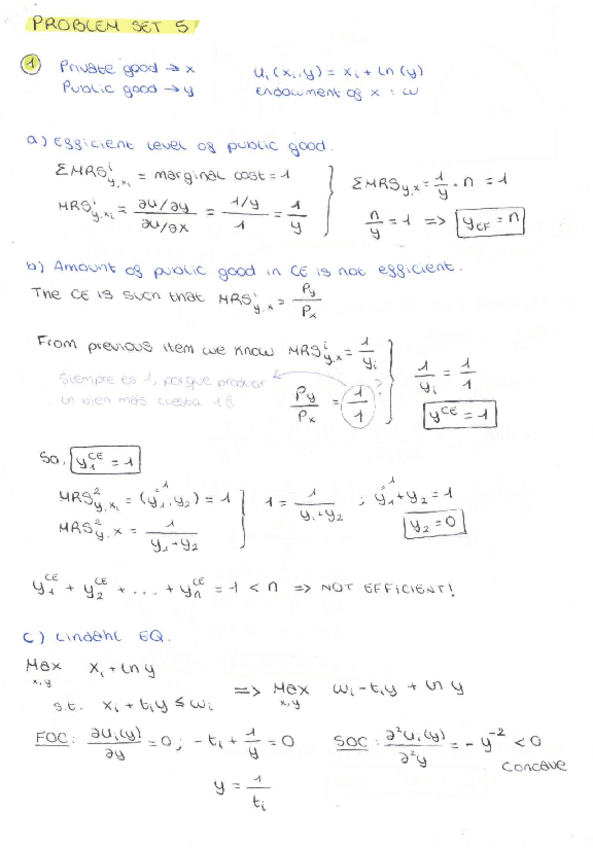 PROBLEM SET 5
1 Private good → x    Ui (xi, y) = xi + ln (y)
Public good → y    Endowment of x : ω
a) Efficient level of public good.
ΣMRS^i_{y,xi} = marginal cost = 1
MRS^i_{y,xi} = (∂u/∂y)/(∂u/∂x) = (1/y)/1 = 1/y
ΣMRS_{y,x} = 1/y · n = 1
n/y = 1 => y_{CF} = n
b) Amount of public good in CE is not efficient.
The CE is such that MRS^i_{y,x} = Py/Px
From previous item we know MRS^i_{y,x} = 1/yi
Siempre es 1, porque producir
un bien más cuesta 1€
Py/Px = 1/1 ?
1/yi = 1/1
y^{CE} = 1
So, y_1^{CE} = 1
MRS^2_{y,xi} = (y1, y2) = 1
MRS^2_{y,x} = 1/(y1+y2)
1 = 1/(y1+y2) ; y1 + y2 = 1
y2 = 0
y_1^{CE} + y_2^{CE} + ... + y_n^{CE} = 1 < n => NOT EFFICIENT!
c) Lindahl EQ.
Max x,y  xi + ln y
s.t. xi + ti y ≤ ωi
=> Max x,y  ωi - ti y + ln y
FOC: ∂Ui(y)/∂y = 0 ; -ti + 1/y = 0    SOC: ∂²Ui(y)/∂²y = - y^{-2} < 0
concave
y = 1/ti